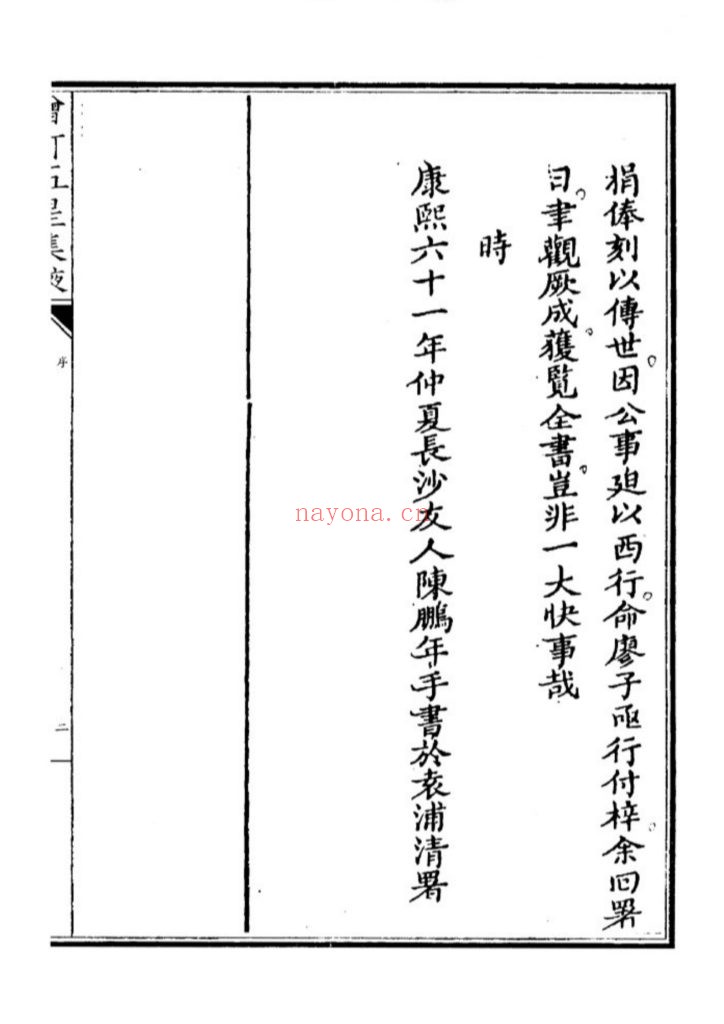 捐俸刻以傳世。因公事廹以西行。命廖子亟行付梓。余回署
日。聿觀厥成。獲覽全書。豈非一大快事哉
時
康熙六十一年仲夏長沙友人陳鵬年手書於袁浦清署
增訂五星集腋
序
二
nayona.cn